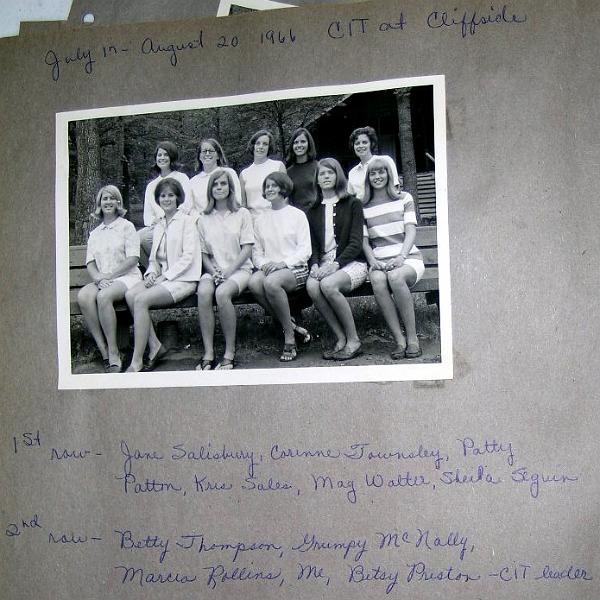 July 17 - August 20 1966 CIT at Cliffside
1st row - Jane Salisbury, Corinne Townsley, Patty
Patton, Kris Sales, Mag Walter, Sheila Seguin
2nd row - Betty Thompson, Grumpy McNally,
Marcia Rollins, Me, Betsy Preston - CIT leader